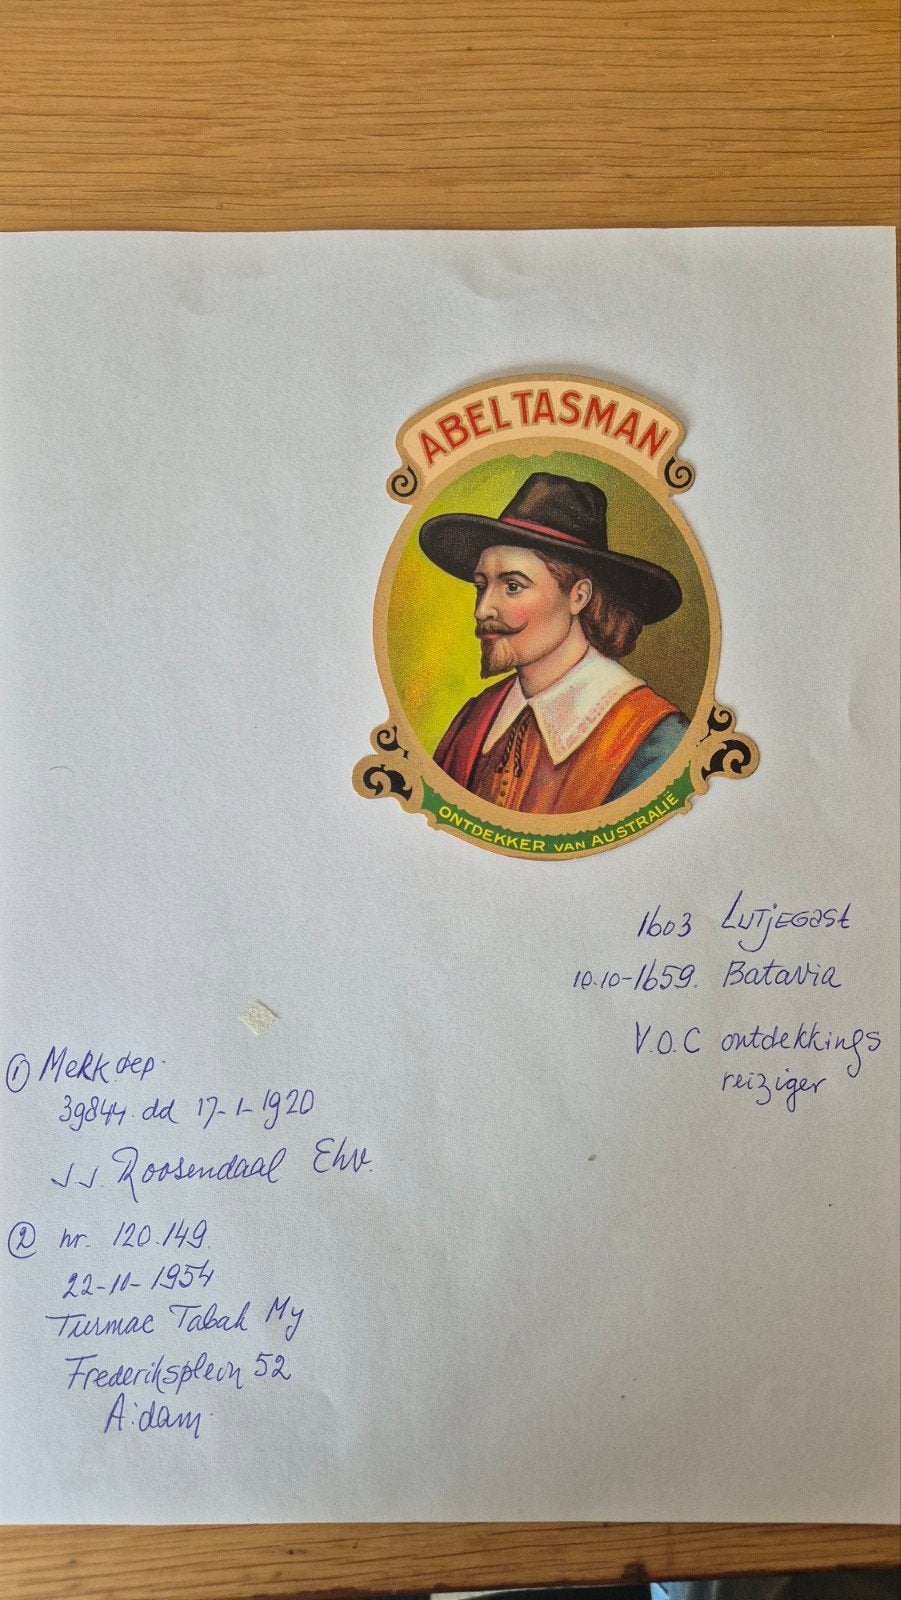 ABEL TASMAN
ONTDEKKER VAN AUSTRALIË
1603 Lutjegast
10.10-1659. Batavia
V.O.C ontdekkings
reiziger
① Merk dep.
39844 dd 17-1-1920
J.J. Roosendaal Ehv.
② nr. 120.149
22-10-1954
Turmac Tabak My
Frederiksplein 52
A'dam.